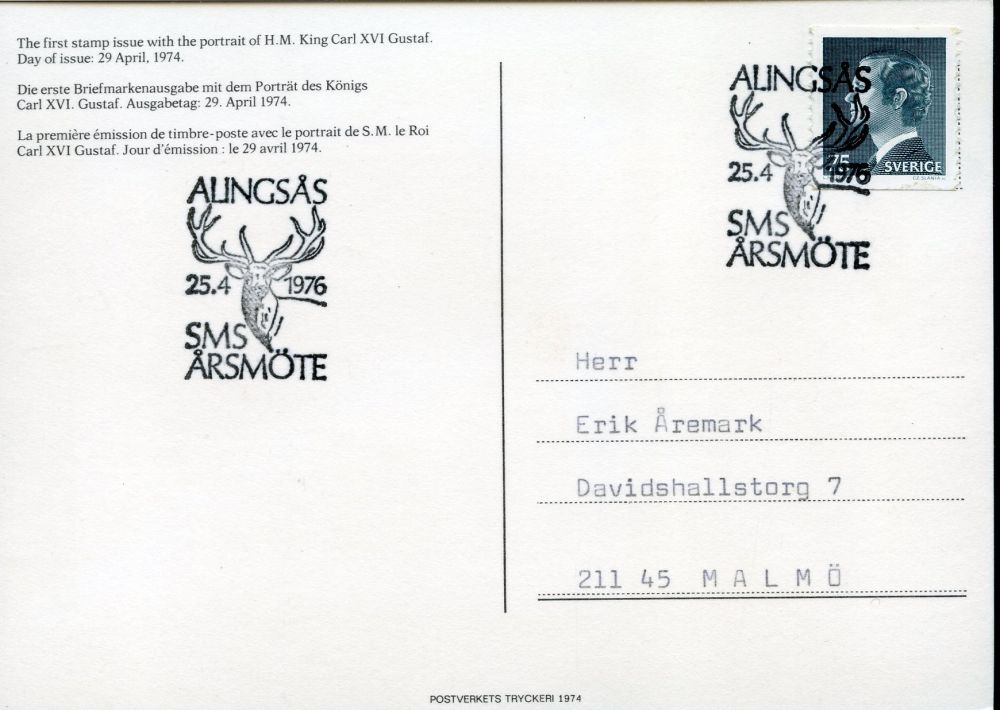 The first stamp issue with the portrait of H.M. King Carl XVI Gustaf.
Day of issue: 29 April, 1974.
Die erste Briefmarkenausgabe mit dem Porträt des Königs
Carl XVI. Gustaf. Ausgabetag: 29. April 1974.
La première émission de timbre-poste avec le portrait de S.M. le Roi
Carl XVI Gustaf. Jour d'émission : le 29 avril 1974.
ALINGSÅS
25.4 1976
SMS
ÅRSMÖTE
ALINGSÅS
25.4 1976
SMS
ÅRSMÖTE
75
SVERIGE
CZ.SLANIA
Herr
Erik Åremark
Davidshallstorg 7
211 45 M A L M Ö
POSTVERKETS TRYCKERI 1974